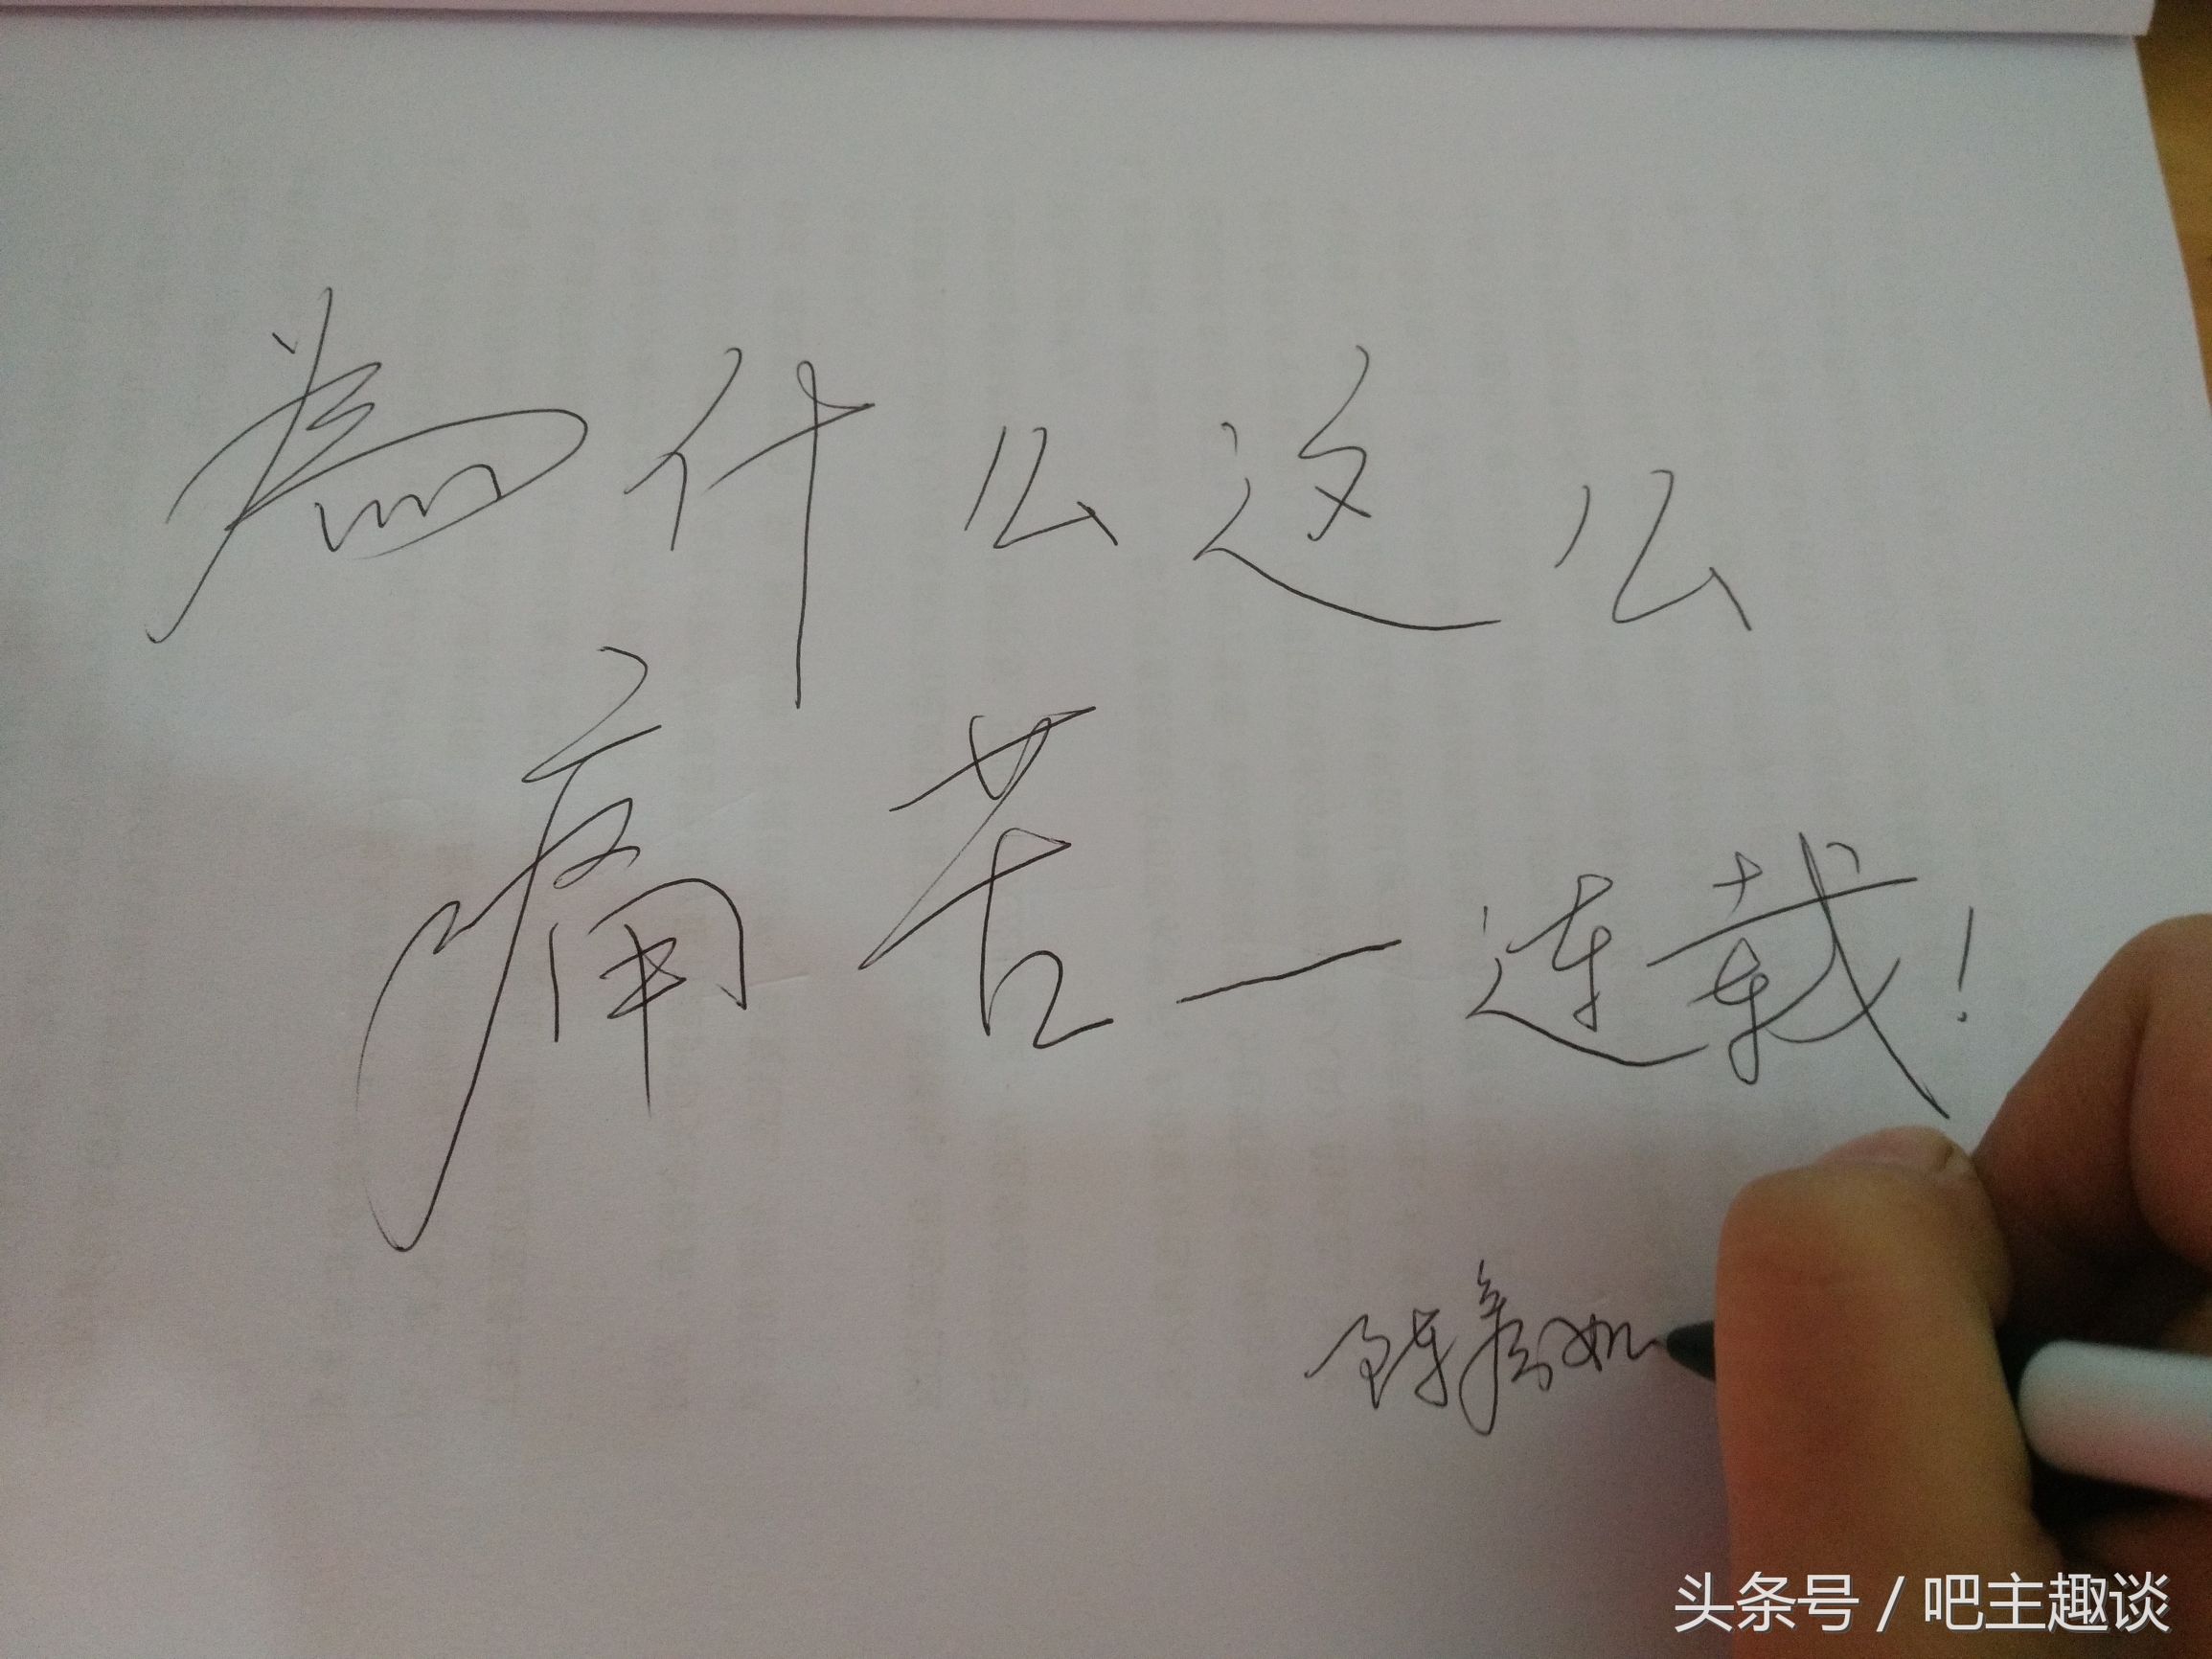 為什么这么
痛苦一连载!
头条号 / 吧主趣谈